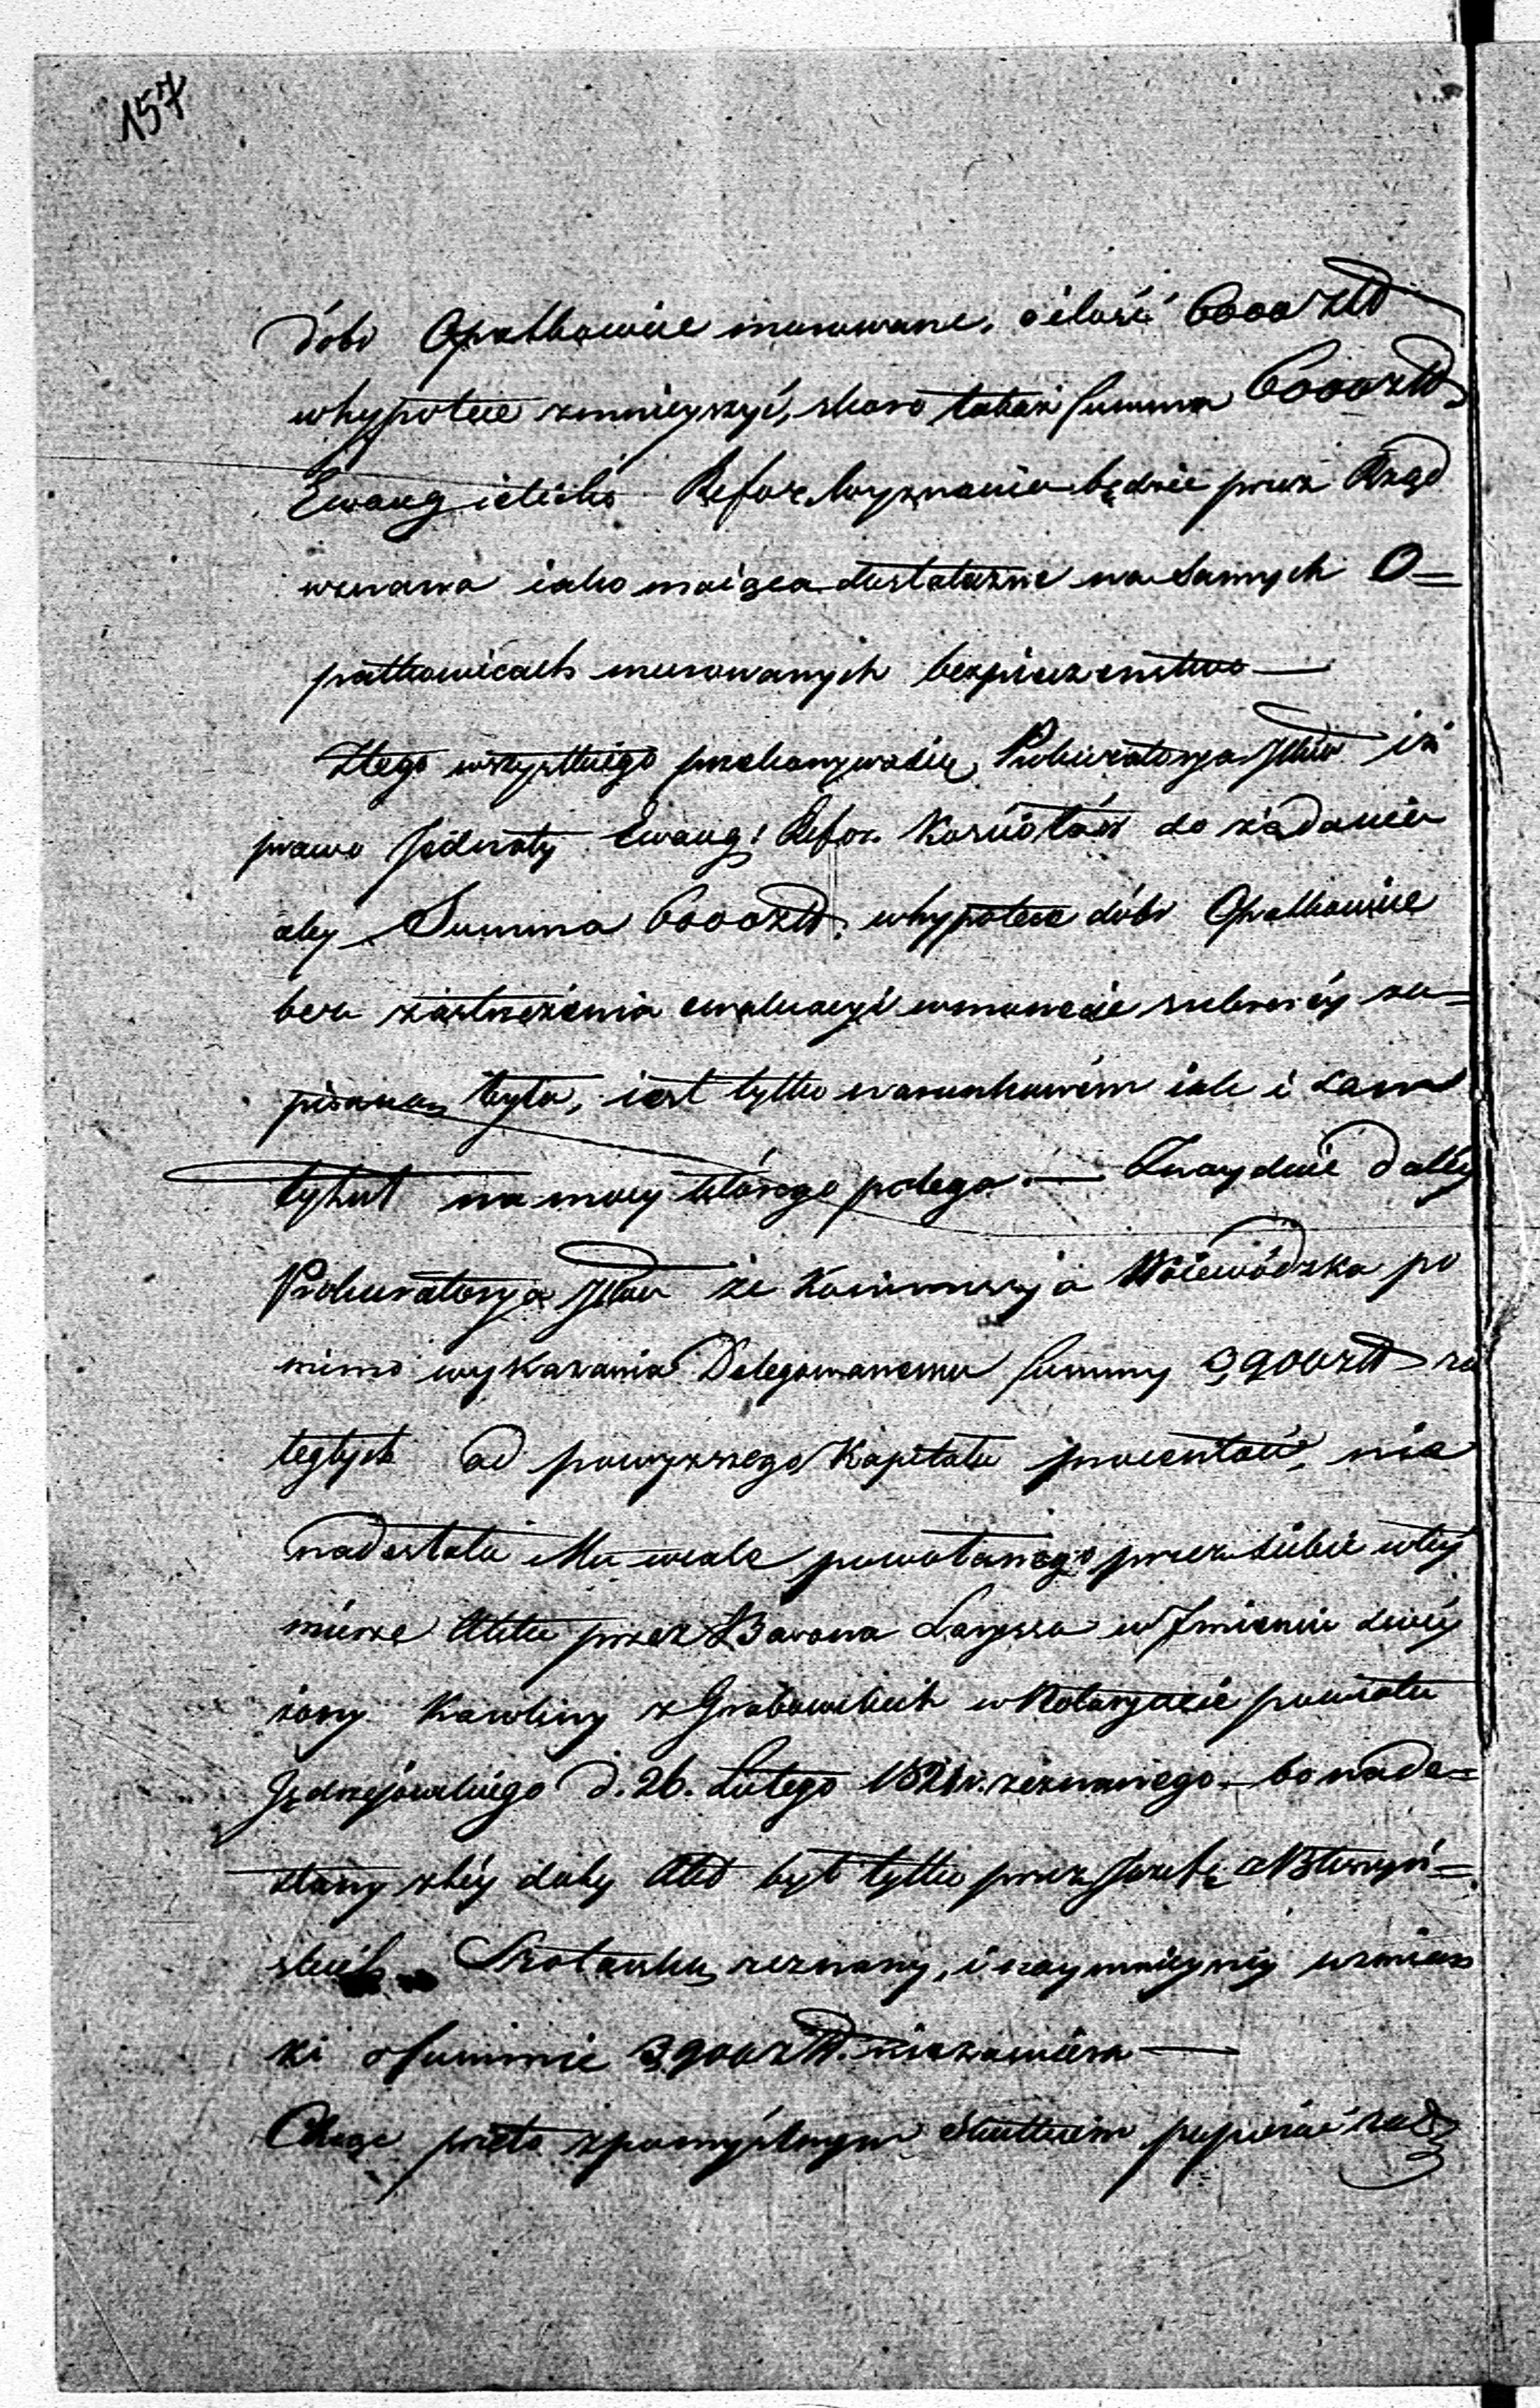 157
dóbr Opatkowice murowane, o ilość 6000 złł
w hypotece zmnieyszyć, skoro takaż summa 6000 złł
Ewangielicko Refor. Wyznania będzie przez Rząd
uznana iako maiąca dostateczne na samych O=
patkowicach murowanych bezpieczeństwo —
Z tego wszystkiego przekonywa się Prokuratorya Jlna iż
prawo Jednoty Ewang: Refor. Kościołów do żądania
aby Summa 6000 złł. w hypotece dóbr Opatkowice
bez zastrzeżenia ewaluacyi w monecie srebrnéy za=
pisaną była, iest tylko warunkowém iak i sam
tytuł na mocy którego polega. — Znayduie daléy
Prokuratorya Jlna że Kommissyia Woiewódzka po
mimo wykazania Delegowanemu summy 3,900 złł za
ległych od powyższego Kapitału procentów, nie
nadesłała Mu wcale powołanego przez siebie w téy
mierze Aktu przez Barona Laryssa w Jmieniu swéy
żony Karoliny z Grabowskich w Notaryacie powiatu
Jędrzejowskiego d. 26. Lutego 1821 r. zeznanego. — bo nade=
słany z téy daty Akt był tylko przez Józefę z Bstrzyń=
skich Szotarską zeznany, i naymnieyszéy wzmian
ki o summie 3,900 złł. nie zawiera —
Chcąc przeto z pomyślnym skutkiem popierać żąd